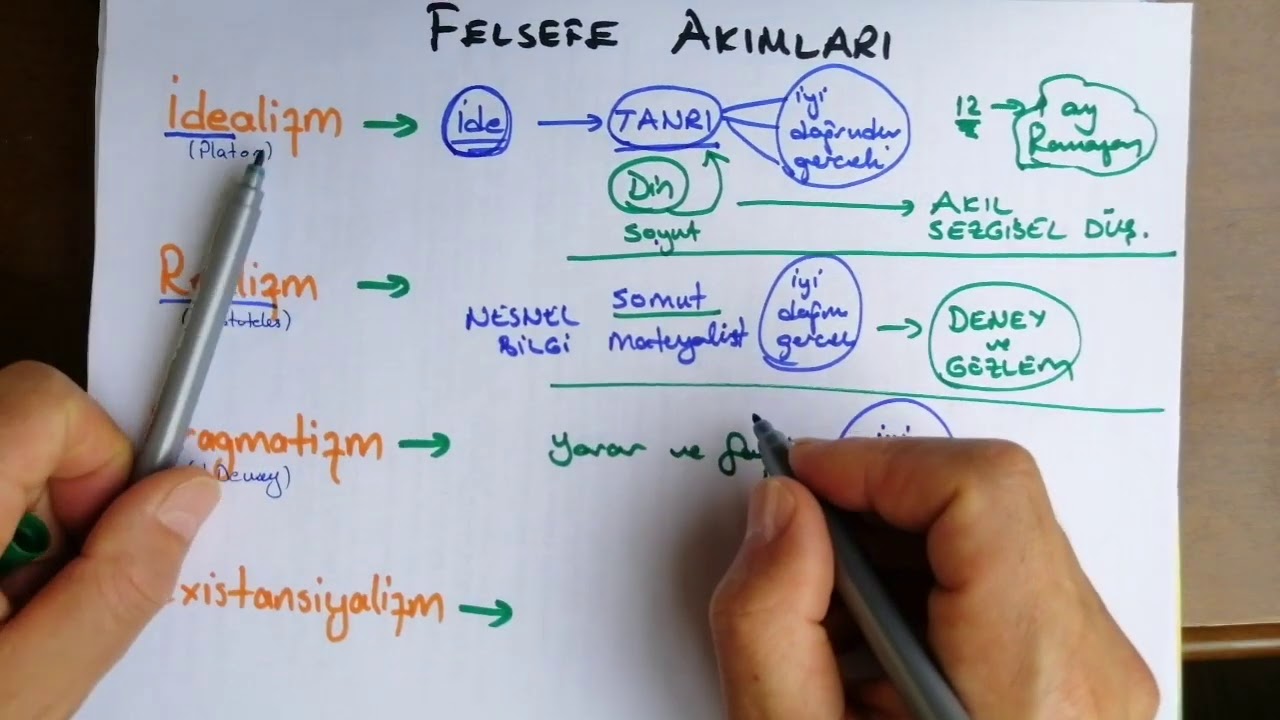 FELSEFE AKIMLARI
İdealizm → ide → TANRI iyi doğrudur gerçek
(Platon)
12 → ay Ramazan
Din
soyut
AKIL
SEZGİSEL DÜŞ.
NESNEL BİLGİ
somut
materyalist
iyi doğru gerçek → DENEY ve GÖZLEM
agmatizm → yarar ve
Dewey)
xistansiyalizm →